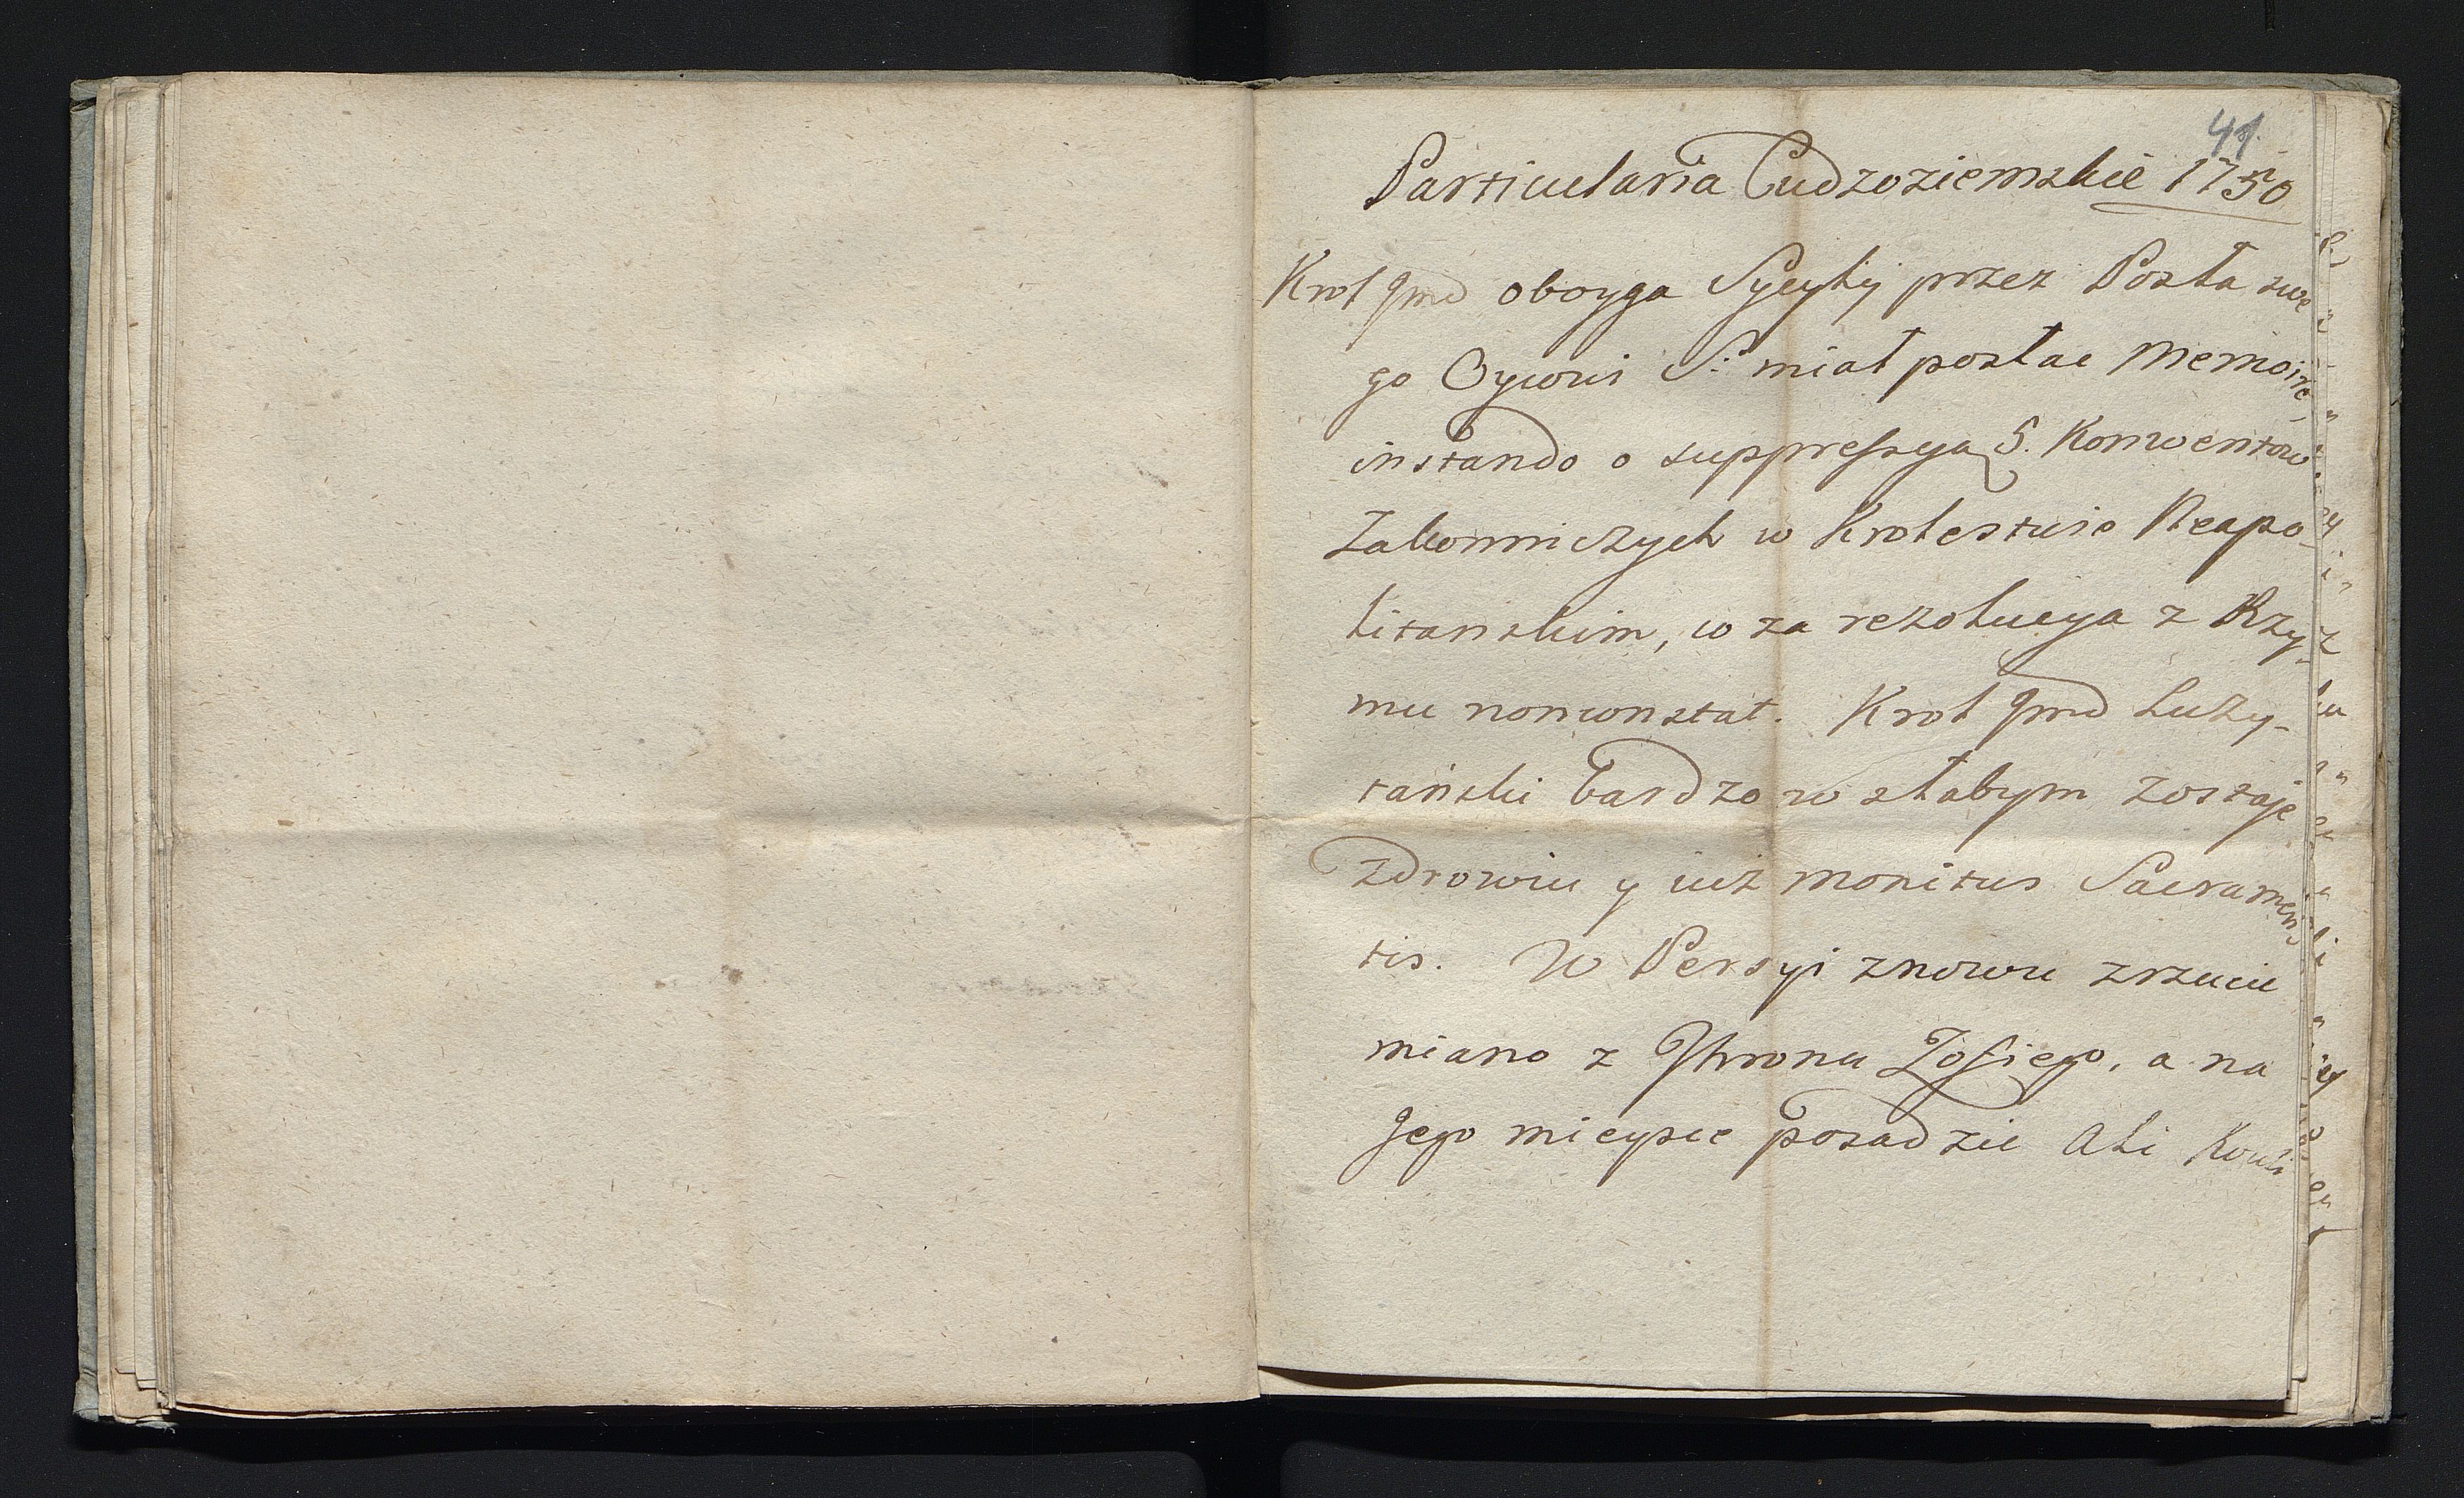 41.
Particularia Cudzoziemskie 1750
Krol Jmć oboyga Sycylij przez Posła swe
go Oycowi S: miał posłac Memoire,
instando o suppressyą 5. Konwentow
Zakonniczych w Krolestwie Neapo-
litanskim, w za rezolucya z Rzy-
mu non constat. Krol Jmć Luzy-
tański bardzo w słabym zostaje
zdrowiu y iuż monitus Sacramen
tis. W Persyi znowu zrzucic
miano z Thronu Zofiego, a na
Jego mieysce posadzic Ali Kouli